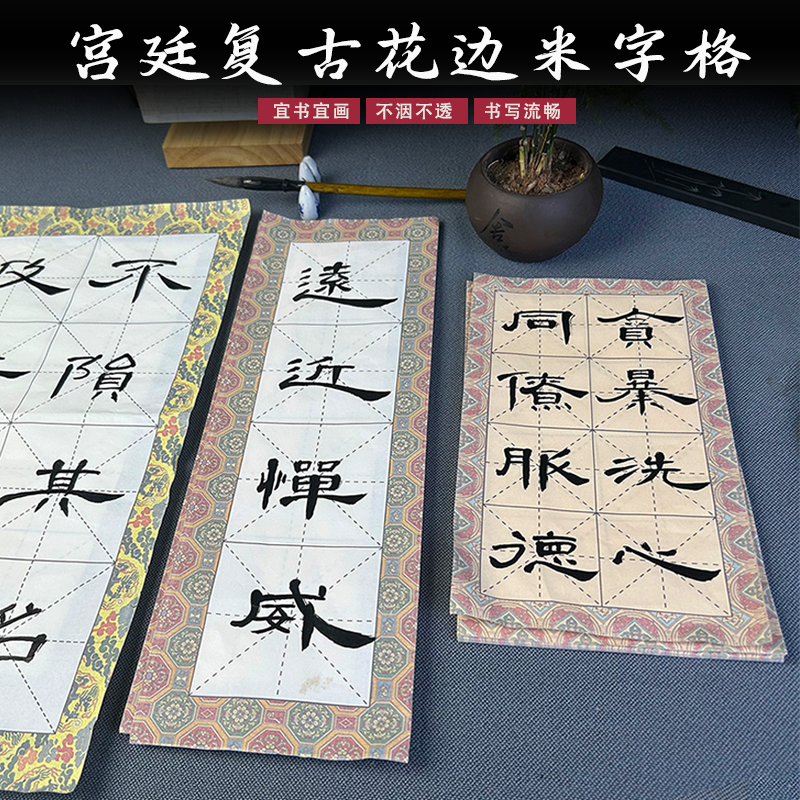 宫廷复古花边米字格
宜书宜画 不洇不透 书写流畅
舍
不隕其名
及
遠近憚威
貪暴洗心
同僚服德